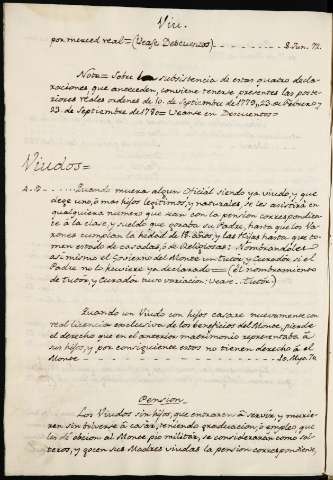 Viu.
por merced real = (Vease Descuentos) - - - - - - - 8. Jun. 72.
Nota = Sobre la subsistencia de estas quatro decla-
raciones, que anteceden, conviene tenerse presentes las poste-
riores reales ordenes de 10. de Septiembre de 1779, 23 de Febrero y
23 de Septiembre de 1780 = Veanse en Descuentos =
Viudos =
4. 8 - - - - - Quando muera algun Oficial siendo ya viudo, y que
dege uno, ò mas hijos legitimos, y naturales, se les asistirà en
qualquiera numero que sean con la pension correspondien-
te à la clase, y sueldo que gozaba su Padre, hasta que los Va-
rones cumplan la hedad de 18. años, y las Hijas hasta que to-
men estado de casadas, ò de Religiosas: Nombrandoles
asimismo el Govierno del Monte un tutor, y Curador si el
Padre no lo huviere ya declarado = (el nombramiento
de tutor, y Curador tuvo variacion: Vease. Tutor)
Quando un Viudo con hijos casare nuevamente con
real licencia exclusiva de los beneficios del Monte, pierde
el derecho que en el anterior matrimonio representaba à
sus hijos, y por consiguiente estos no tienen derecho à el
Monte - - - - - - - - - - - - - - - - - - 20. Mayo. 74
Pension
Los Viudos sin hijos, que entraren à servir, y murie-
ren sin bolverse à casar, teniendo graduacion, ò empleo, que
les dè obcion al Monte pio militar, se consideraràn como sol-
teros, y gocen sus Madres viudas la pension correspondiente,